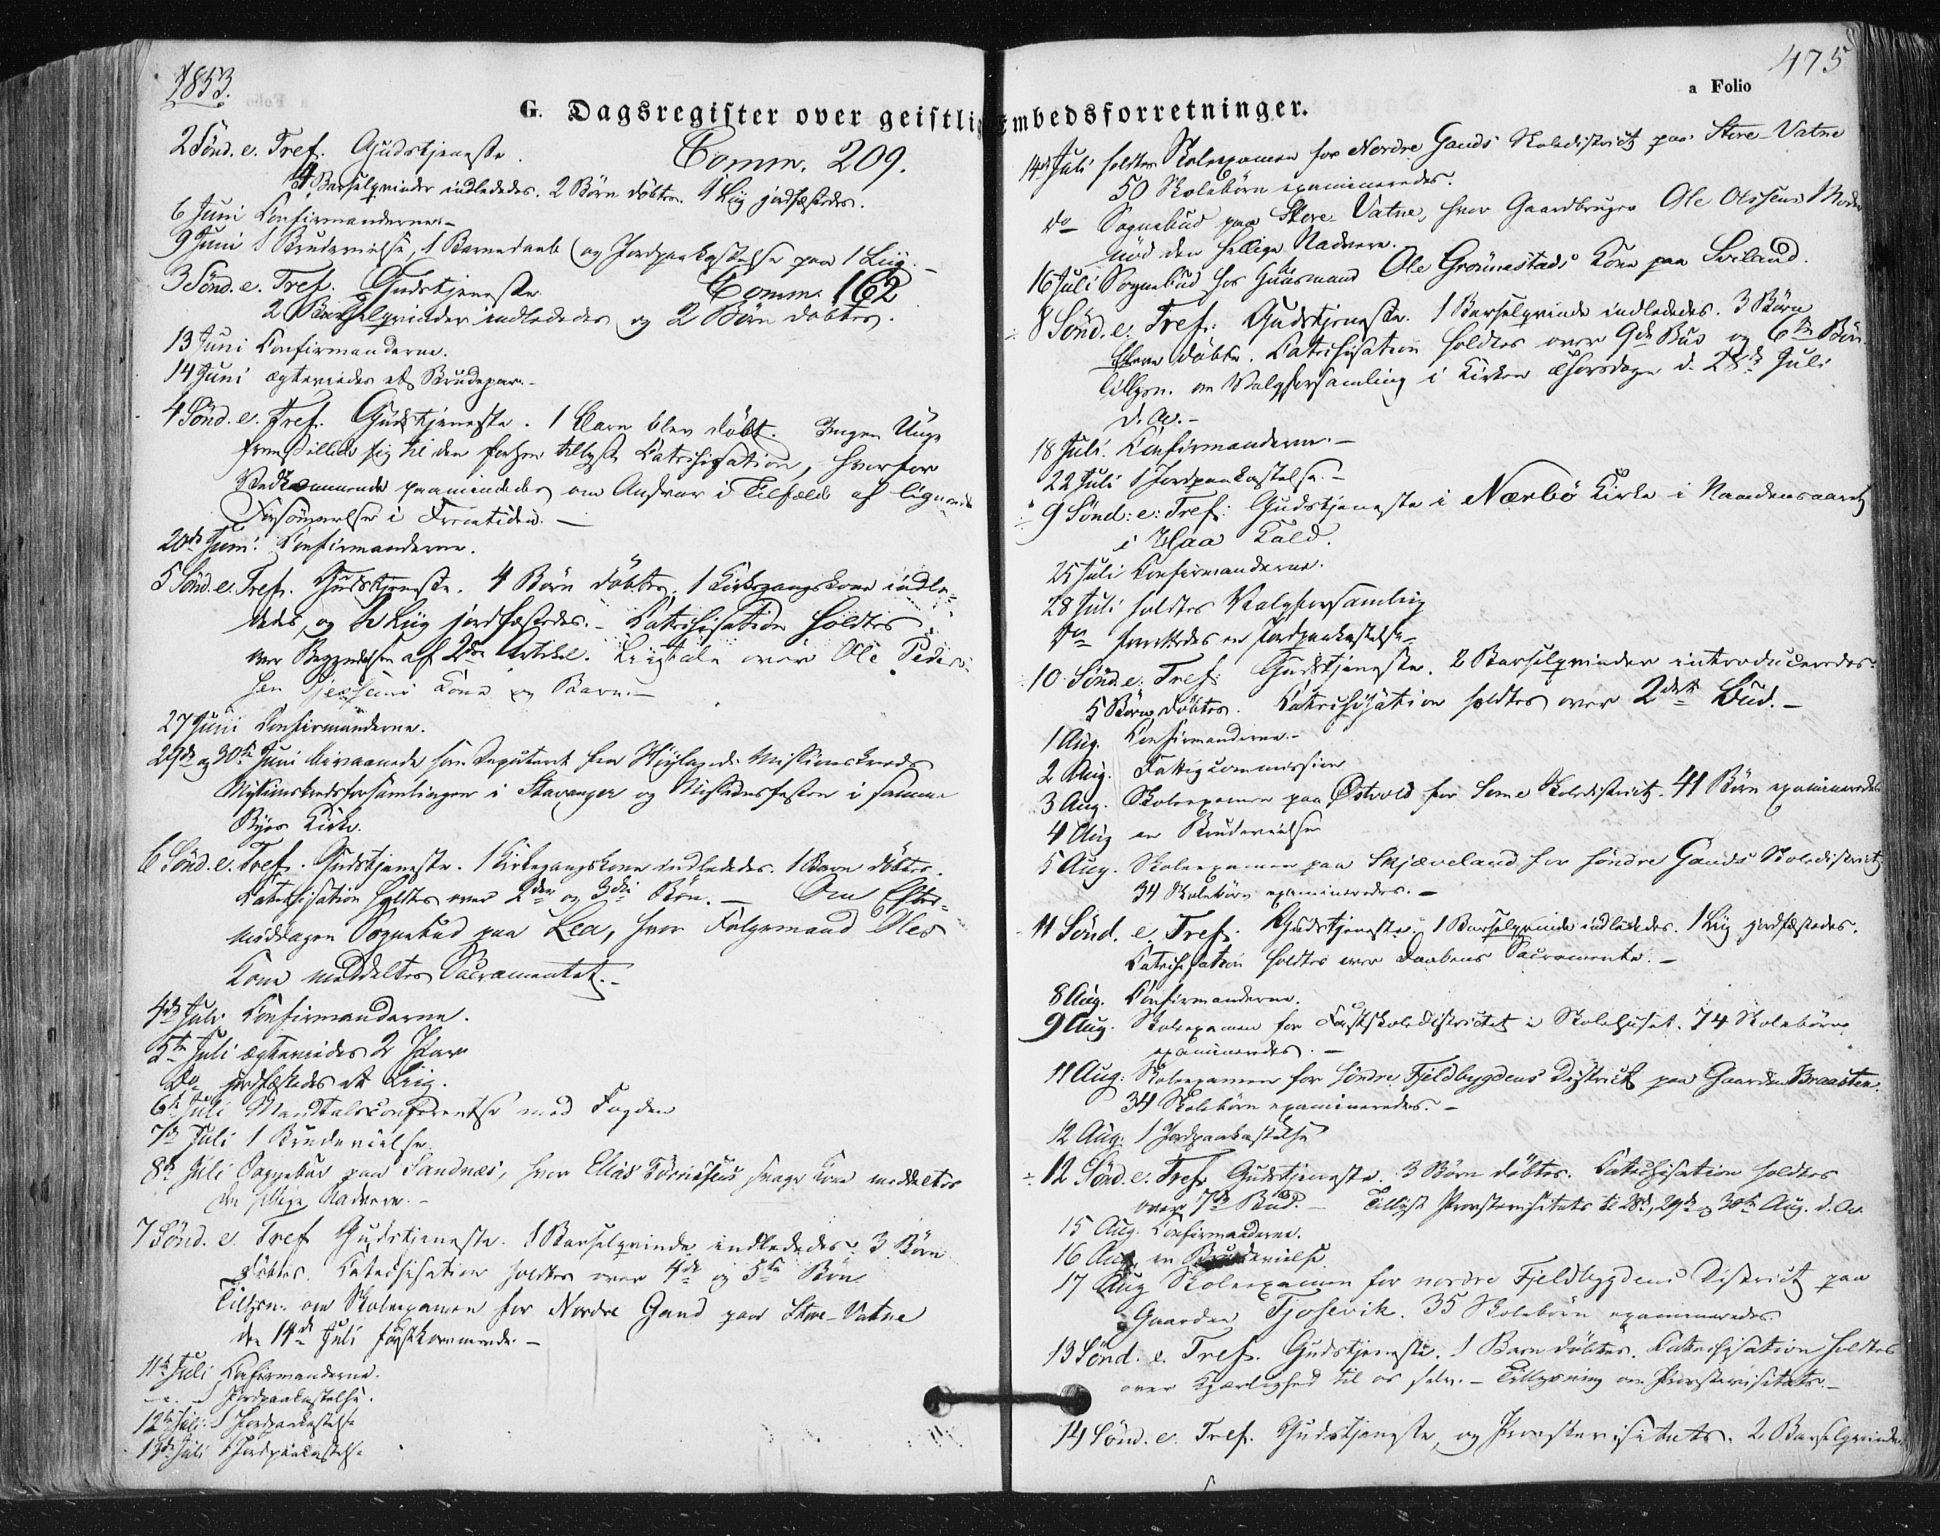 1853.
475
a Folio
G. Dagsregister over geistlige Embedsforretninger.
2 Sönd. e. Tref. Gudstjeneste. Comm. 209.
4 Barselqvinder indlededes. 2 Börn döbtes. 1 Liig jordfæstedes.
6 Juni Confirmanderne.-
9 Juni 1 Brudevielse, 1 Barnedaab og Jordpaakastelse paa 1 Liig.-
3 Sönd. e. Tref. Gudstjeneste. Comm. 162
2 Barselqvinder indlededes og 2 Börn döbtes.
13 Juni Confirmanderne.
14 Juni ægteviedes et Brudepar.-
4 Sönd. e. Tref. Gudstjeneste. 1 Barn blev döbt. Ingen Unge
fremstillede sig til den forhen tillyste Catechisation, hvorfor
Vedkommende paamindedes om Ansvar i Tilfælde af lignende
Forsömmelse i Fremtiden.-
20de Juni Confirmanderne.
5 Sönd. e. Tref. Gudstjeneste. 4 Börn döbtes. 1 Kirkegangskone indle-
dedes, og Liig jordfæstedes.- Catechisation holdtes
over Begyndelsen af 2den Artikel. Liigtale over Ole Peder-
sen Kone og Barn.-
27 Juni Confirmanderne.
29de og 30te Juni bivaanede som Deputeret for Höylands Missionskreds
Missionskredsforsamlingen i Stavanger og Missionsfesten i samme
Byes Kirke.
6 Sönd. e. Tref. Gudstjeneste. 1 Kirkegangskone indlededes. 1 Barn döbtes.
Catechisation holdtes over 2den og 3die Bön.- Om Efter-
middagen Sognebud paa Lea, hvor Folgemand Oles
Kone meddeltes Sacramentet.-
4de Juli Confirmanderne.
5te Juli ægteviedes 2 Par
do jordfæstedes et Liig.
6te Juli Mandtalsconference med Fogden
7de Juli 1 Brudevielse.
8de Juli Sognebud paa Sandnæs, hvor Elias svage Kone meddeltes
den hellige Nadvere.-
7 Sönd. e. Tref Gudstjeneste. 1 Barselqvinde indlededes. 3 Börn
döbtes. Catechisation holdtes over 4de og 5te Bön
Tillysn. om Skoleexamen for Nordre Gand paa Store-Vatne
den 14de Juli förstkommende.-
11te Juli Confirmanderne.
1 Jordpaakastelse.
12te Juli 1 Jordpaakastelse
13de Juli 1 Jordpaakastelse
14de Juli holdtes Skoleexamen for Nordre Gands Skoledistrict paa Store-Vatne
50 Skolebörn examineredes.
do Sognebud paa Store Vatne, hvor Gaardbruger Ole Olssens Moder
nöd den hellige Nadvere.
16 Juli Sognebud hos Huusmand Ole Grönnestads Kone paa Sviland.
8 Sönd. e. Tref: Gudstjeneste. 1 Barselqvinde indlededes. 3 Börn
bleve döbte. Catechisation holdtes over 9de Bud og 6te Bön
Tillysn. om Valgforsamling i Kirken Thorsdagen d. 28de Juli
d. A.-
18 Juli. Confirmanderne.-
22 Juli 1 Jordpaakastelse.-
9 Sönd: e: Tref: Gudstjeneste i Nærbö Kirke i Naadensaaret
i Haa Kald.
25 Juli Confirmanderne.
28 Juli holdtes Valgforsamling
do forrettedes en Jordpaakastelse-
10 Sönd. e. Tref: Gudstjeneste. 2 Barselqvinder introduceredes.
5 Börn döbtes. Catechisation holdtes over 2det Bud.-
1 Aug. Confirmanderne.-
2 Aug. Fattigcommission
3 Aug. Skoleexamen paa Østvold for Some Skoledistrict. 41 Börn examineredes
4 Aug en Brudevielse
5 Aug. Skoleexamen paa Skjæveland for söndre Gands Skoledistrict
34 Skolebörn examineredes.-
11 Sönd. e. Tref. Gudstjeneste. 1 Barselqvinde indlededes. 1 Liig jordfæstedes.
Catechisation holdtes over Daabens Sacramente.-
8 Aug. Confirmanderne.
9 Aug. Skoleexamen for Fastskoledistrictet i Skolehuset. 74 Skolebörn
examineredes.-
11 Aug: Skoleexamen for Söndre Fjeldbygdens District paa Gaarden Braasten.
34 Skolebörn examineredes.-
12 Aug. 1 Jordpaakastelse
12 Sönd. e. Tref. Gudstjeneste. 3 Börn döbtes. Catechisation holdtes
over 7de Bud.- Tillyst Provstevisitats til 28de, 29de og 30te Aug. d. A.
15 Aug. Confirmanderne.
16 Aug en Brudevielse.
17 Aug Skoleexamen for nordre Fjeldbygdens District paa
Gaarden Tjosevik. 35 Skolebörn examineredes
13 Sönd. e. Tref. Gudstjeneste. 1 Barn döbtes. Catechisation holdtes
over Kjærlighed til os selv.- Tillysning om Provstevisitats.-
14 Sönd. e. Tref. Gudstjeneste og Provstevisitats. 2 Barselqvinder